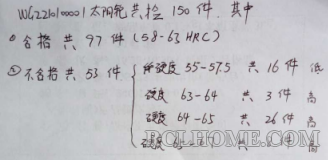 WG221010001 太阳轮共检 150 件. 其中
① 合格 共 97 件 (58-63 HRC)
② 不合格 共 53 件
硬度 55-57.5 共 16 件 低
硬度 63-64 共 3 件 高
硬度 64-65 共 26 件 高
硬度 件 高